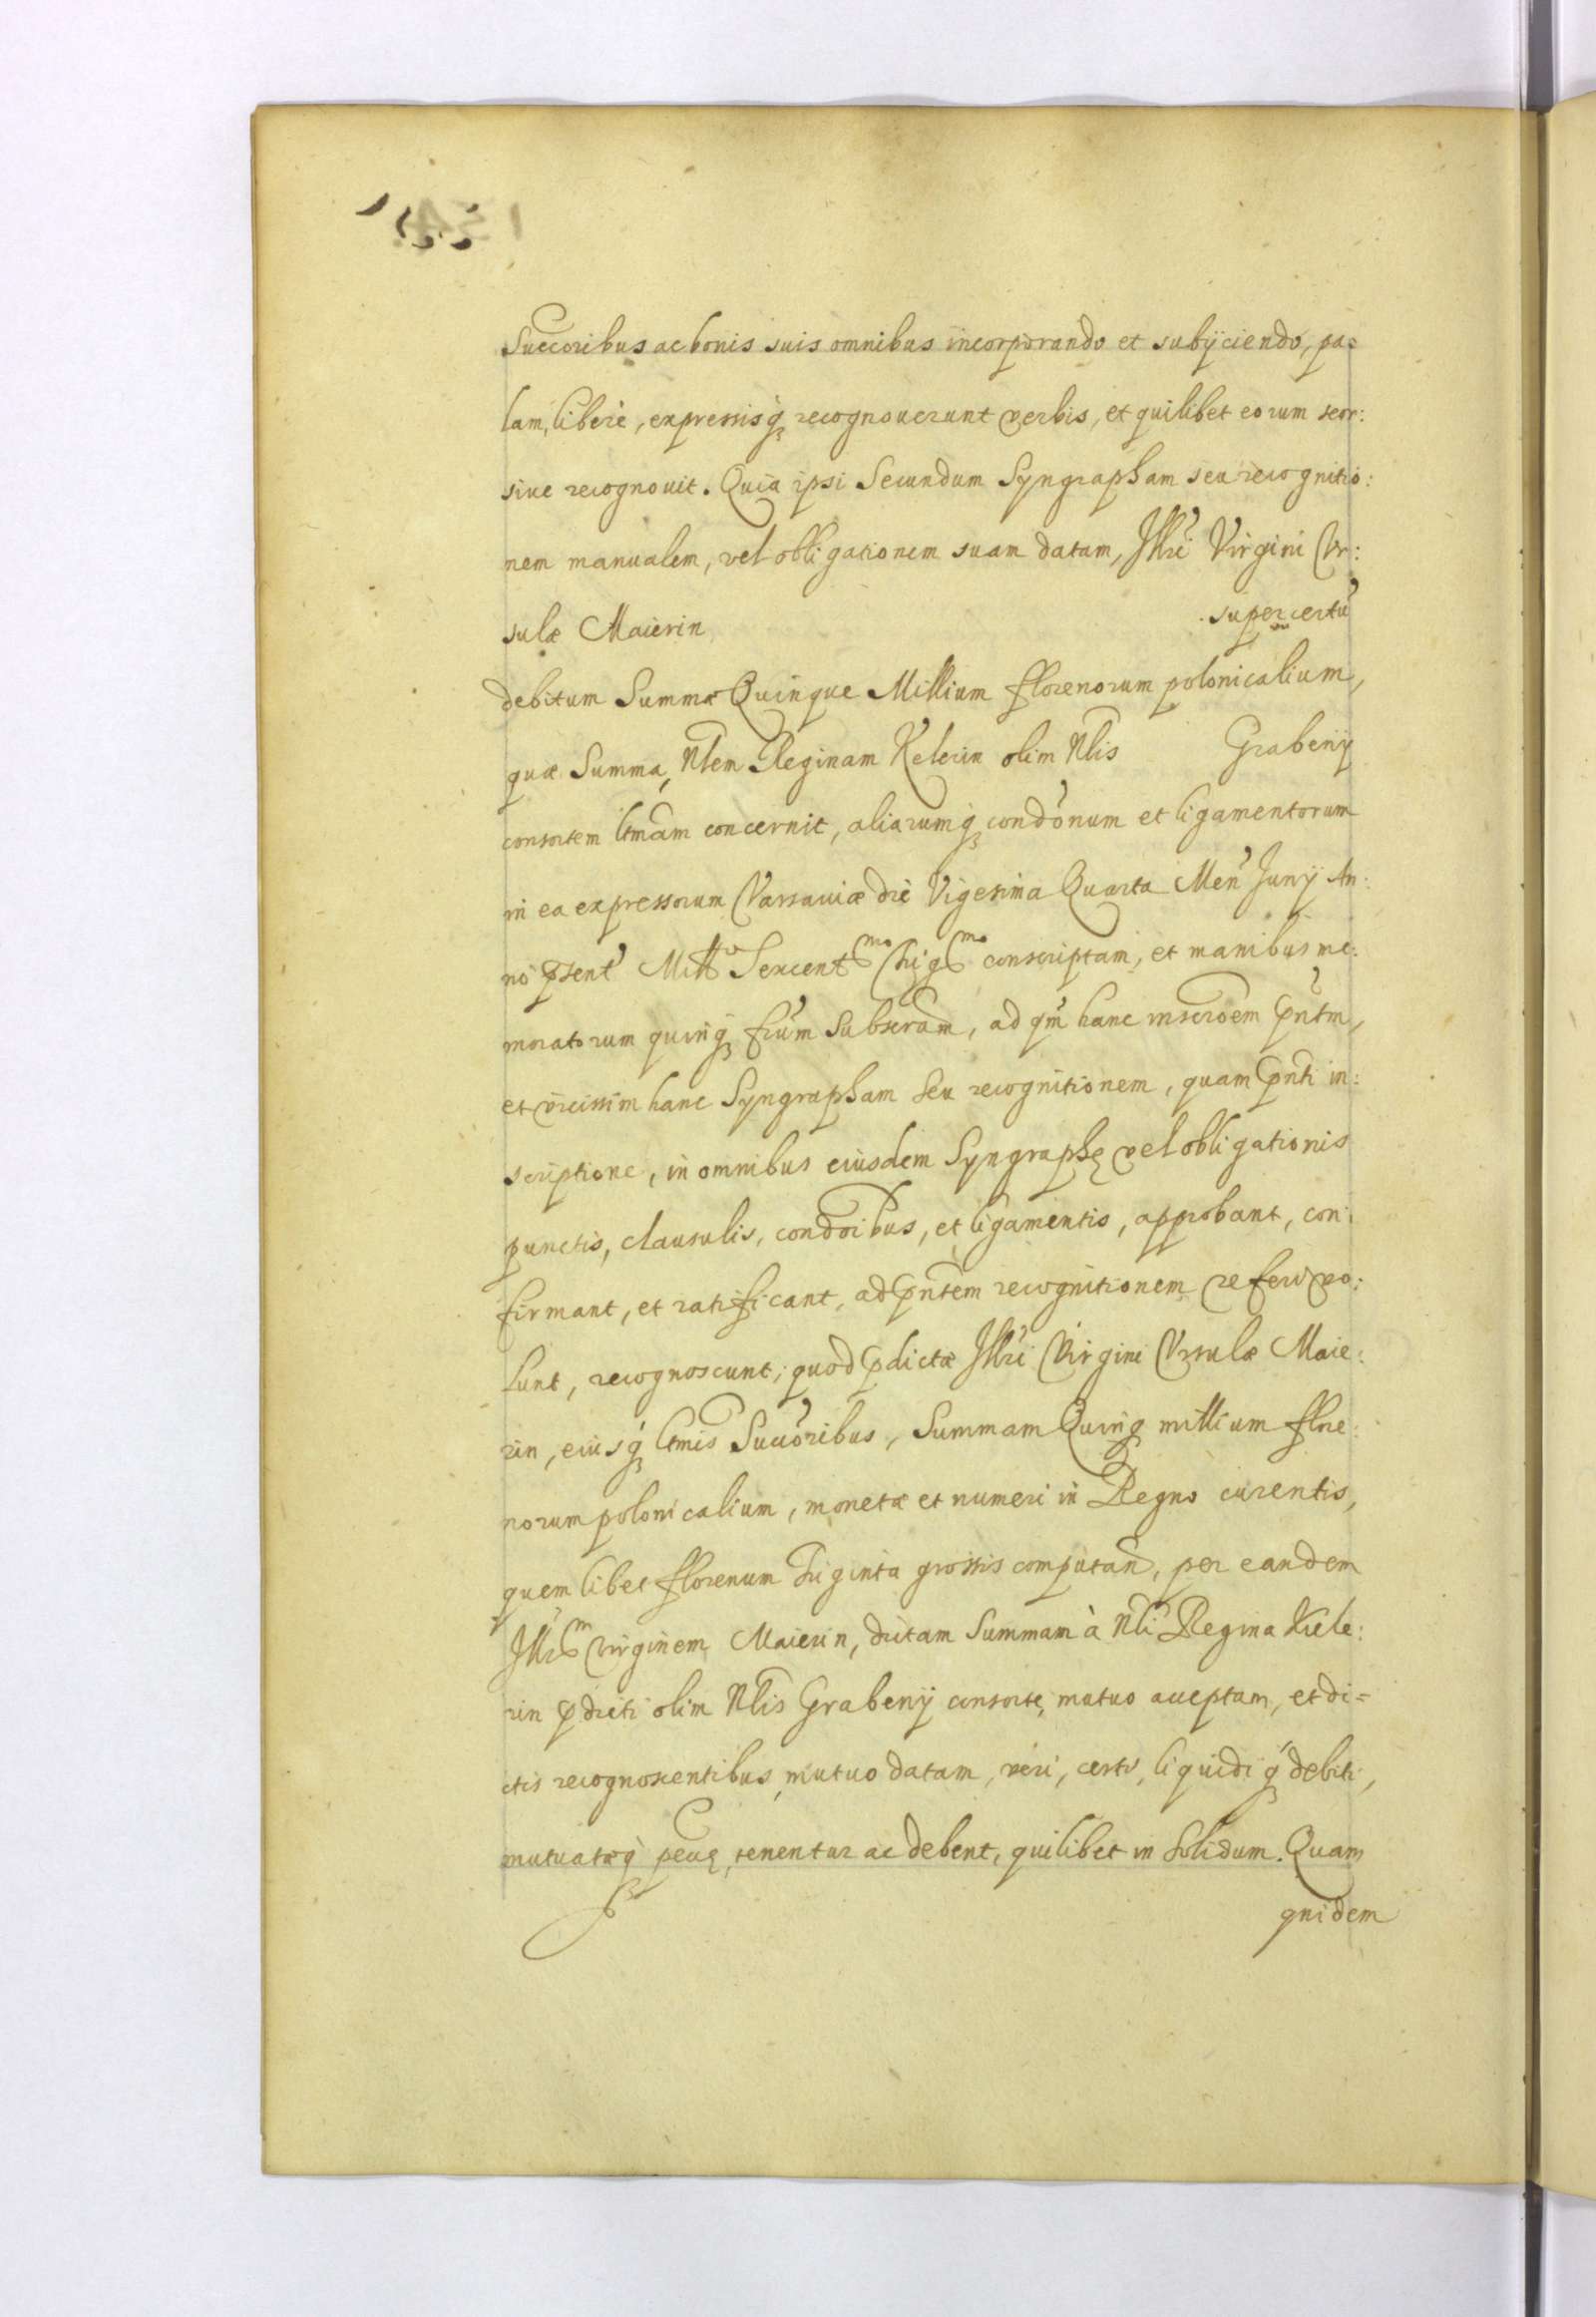 Succoribus ac bonis suis omnibus incorporando et subijciendo, pa=
lam, libere, expressisq́ꝫ recognoverunt verbis, et quilibet eorum seor:
sive recognovit. Quia ipsi Secundum Syngrapham seu recognitio:
nem manualem, vel obligationem suam datam, Illri Virgini Vr:
sulæ Maierin super certũ
debitum Summæ Quinque Millium florenorum polonicalium,
quæ Summa, Nlem Reginam Kelerin olim Nlis Grabenij
consortem ltmam concernit, aliarumq́ꝫ condonum et ligamentorum
in ea expressorum Varsaviæ die Vigesima Quarta Men Junij An:
no pñsent Mill° Sexcent mo Trig mo conscriptam, et manibus me:
moratorum quinqꝫ frum Subscram, ad qm hanc inscroem pntm,
et vicissim hanc Syngrapham seu recognitionem, quam pnti in:
scriptione, in omnibus eiusdem Syngraphę vel obligationis
punctis, clausulis, condoibus, et ligamentis, approbant, con:
firmant, et ratificant, ad pntem recognitionem referri vo:
lunt, recognoscunt; quod pdictæ Illri Virgini Vrsulæ Maie:
rin, eiusq́ꝫ ltmis Succoribus, Summam Quinqꝫ millium flore:
norum polonicalium, monetæ et numeri in Regno curentis,
quemlibet florenum triginta grossis computan, per eandem
Illre m Virginem Maierin, dictam Summam à Nli Regina Kele:
rin pdicti olim Nlis Grabenij consorte, mutuo acceptam, et di=
ctis recognoscentibus, mutuo datam, veri, certi, liquidiq́ꝫ debiti,
mutuatæq́ꝫ pecuę, tenentur ac debent, quilibet in solidum. Quam
quidem